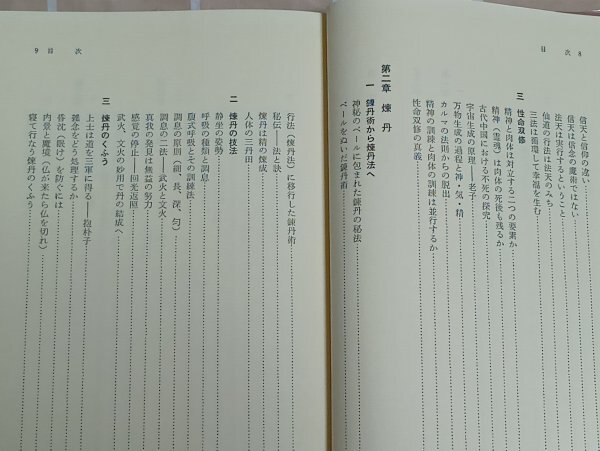 目次 8
信天と信仰の違い
信天は信念の魔術ではない
法天は実行するということ
仙道の行法は法天のみち
三法は循環して幸福を生む
三 性命双修
精神と肉体は対立する二つの要素か
精神(霊魂)は肉体の死後も残るか
古代中国における不死の探究
宇宙生成の原理——老子
万物生成の過程と神・気・精
カルマの法則からの脱出
精神の訓練と肉体の訓練は並行するか
性命双修の真義
第二章 煉丹
一 錬丹術から煉丹法へ
神秘のベールに包まれた錬丹の秘法
ベールをぬいだ錬丹術
9 目次
行法(煉丹法)に移行した錬丹術
秘伝——法と訣
煉丹は精の煉成
人体の三丹田
二 煉丹の技法
静坐の姿勢
呼吸の種類と調息
腹式呼吸とその訓練法
調息の原則(細、長、深、匀)
調息の二法——武火と文火
真我の発見は無益の努力
感覚の停止——回光返照
武火、文火の妙用で丹の結成へ
三 煉丹のくふう
上士は道を三軍に得る——抱朴子
雑念をどう処理するか
昏沈(眠け)を防ぐには
内景と魔境(仏が来たら仏を切れ)
寝て行なう煉丹のくふう